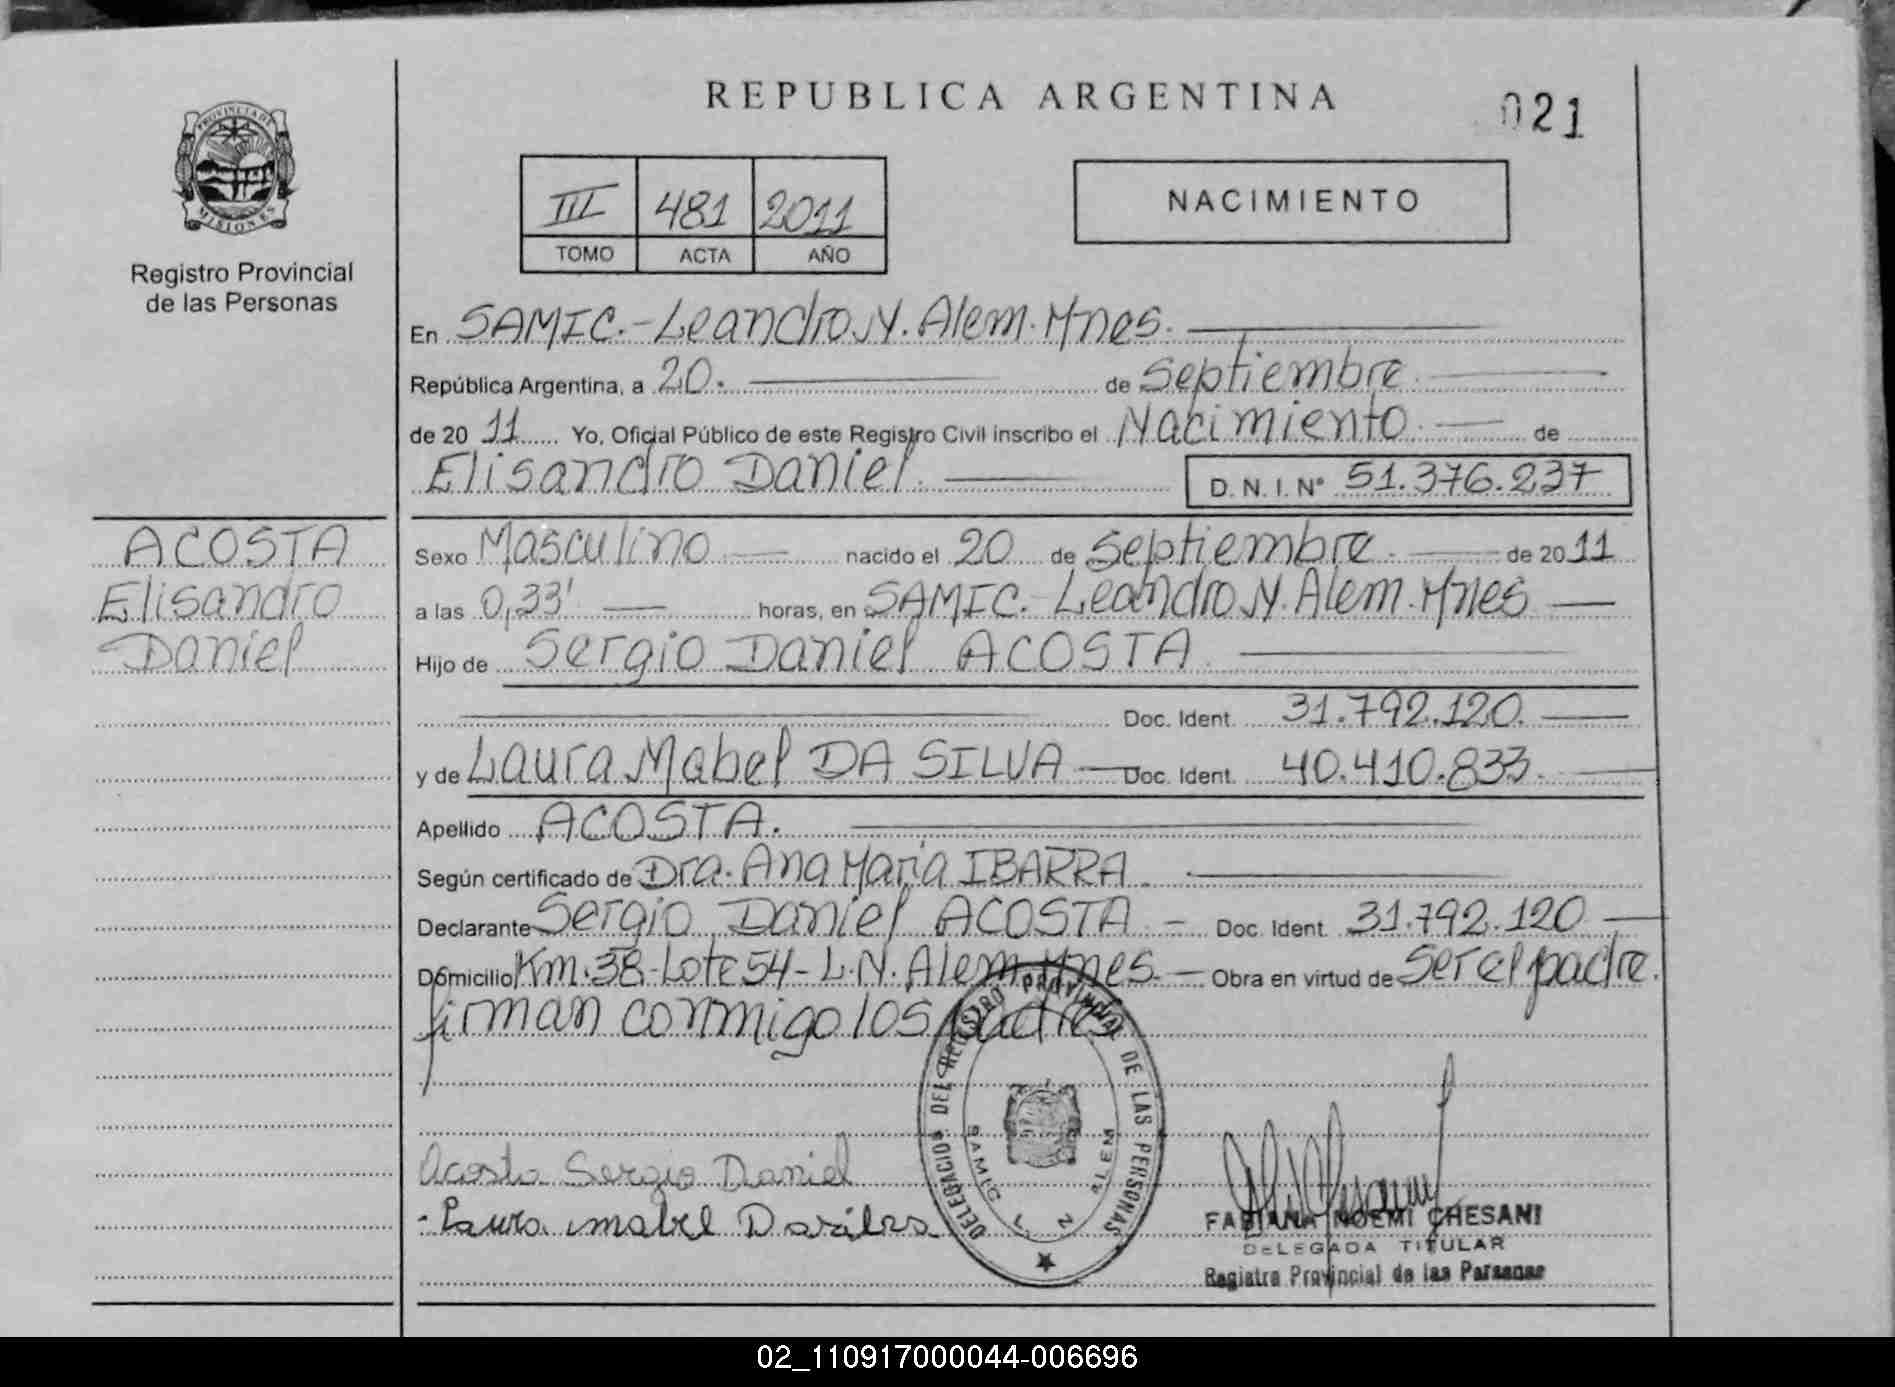 REPUBLICA ARGENTINA
021
PROVINCIA DE
MISIONES
Registro Provincial
de las Personas
III 481 2011
TOMO ACTA AÑO
NACIMIENTO
En SAMIC.-Leandro N. Alem. Mnes.
República Argentina, a 20. de Septiembre
de 20 11 Yo, Oficial Público de este Registro Civil inscribo el Nacimiento de
Elisandro Daniel. D.N.I. N° 51.376.237
ACOSTA
Elisandro
Daniel
Sexo Masculino nacido el 20 de Septiembre de 20 11
a las 0,33' horas, en SAMIC. Leandro N. Alem. Mnes
Hijo de Sergio Daniel ACOSTA
Doc. Ident. 31.792.120.
y de Laura Mabel DA SILVA Doc. Ident. 40.410.833.
Apellido ACOSTA.
Según certificado de Dra. Ana Maria IBARRA
Declarante Sergio Daniel ACOSTA - Doc. Ident. 31.792.120
Domicilio Km. 38-Lote 54-L.N. Alem. Mnes. Obra en virtud de Ser el padre.
firman conmigo los padres
DELEGACION DEL REGISTRO PROVINCIAL DE LAS PERSONAS
SAMIC L N ALEM
Acosta Sergio Daniel
- Laura mabel Dasilva
FABIANA NOEMI CHESANI
DELEGADA TITULAR
Registro Provincial de las Personas
02_110917000044-006696